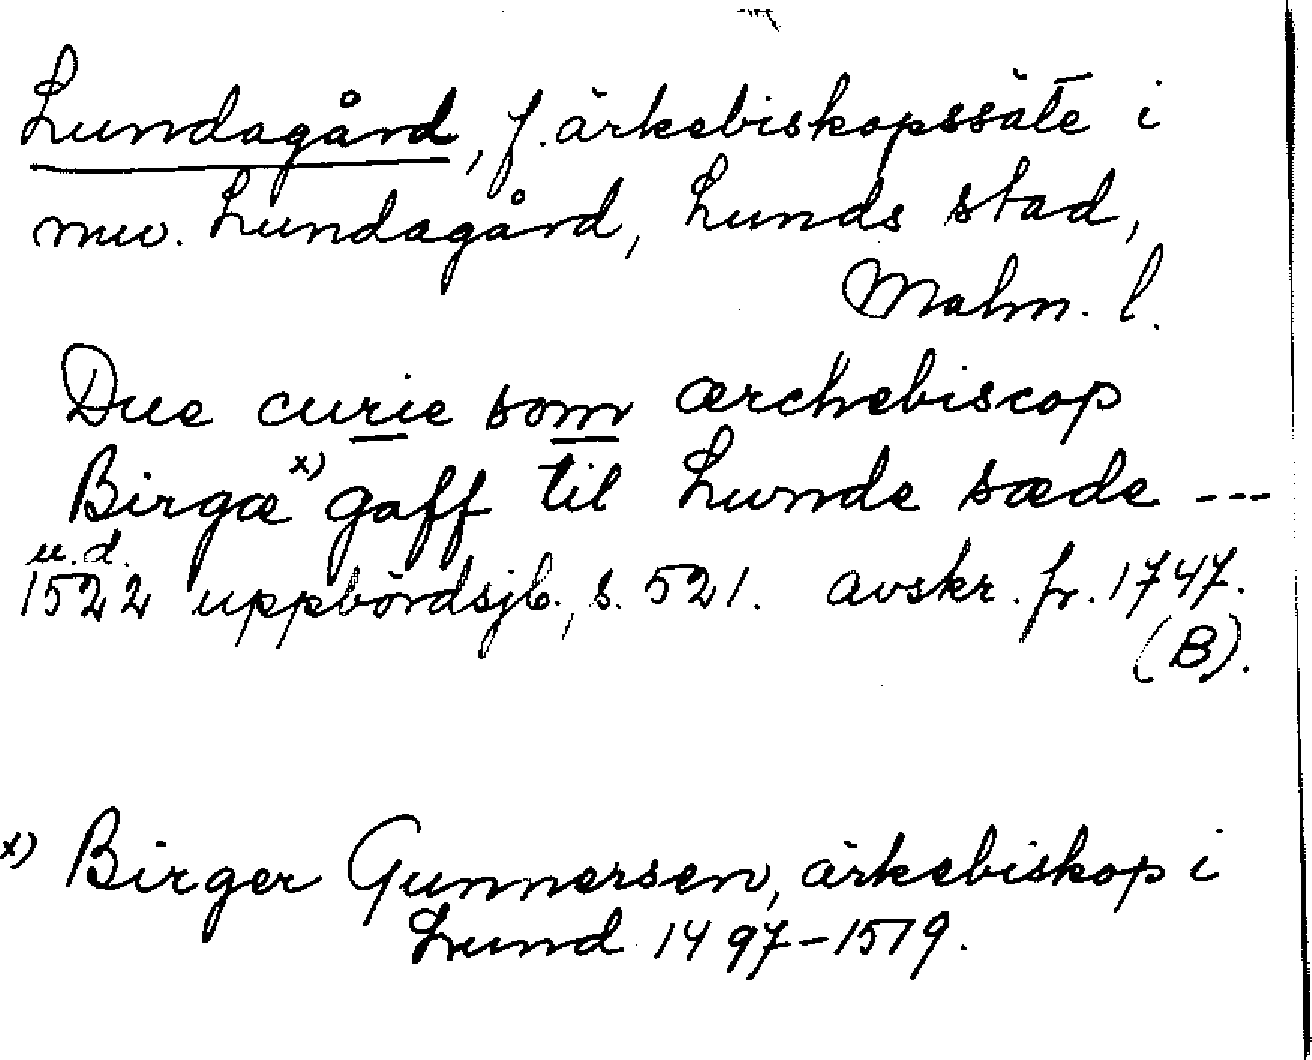 Lundagård, f. ärkebiskopssäte i
nuv. Lundagård, Lunds stad,
Malm. l.
Due curie som ærchebiscop
Birgæ x) gaff til Lunde sæde ---
u.d.
1522 uppbördsjb., s. 521. avskr. fr. 1747.
(B).
x) Birger Gunnersen, ärkebiskop i
Lund 1497-1519.